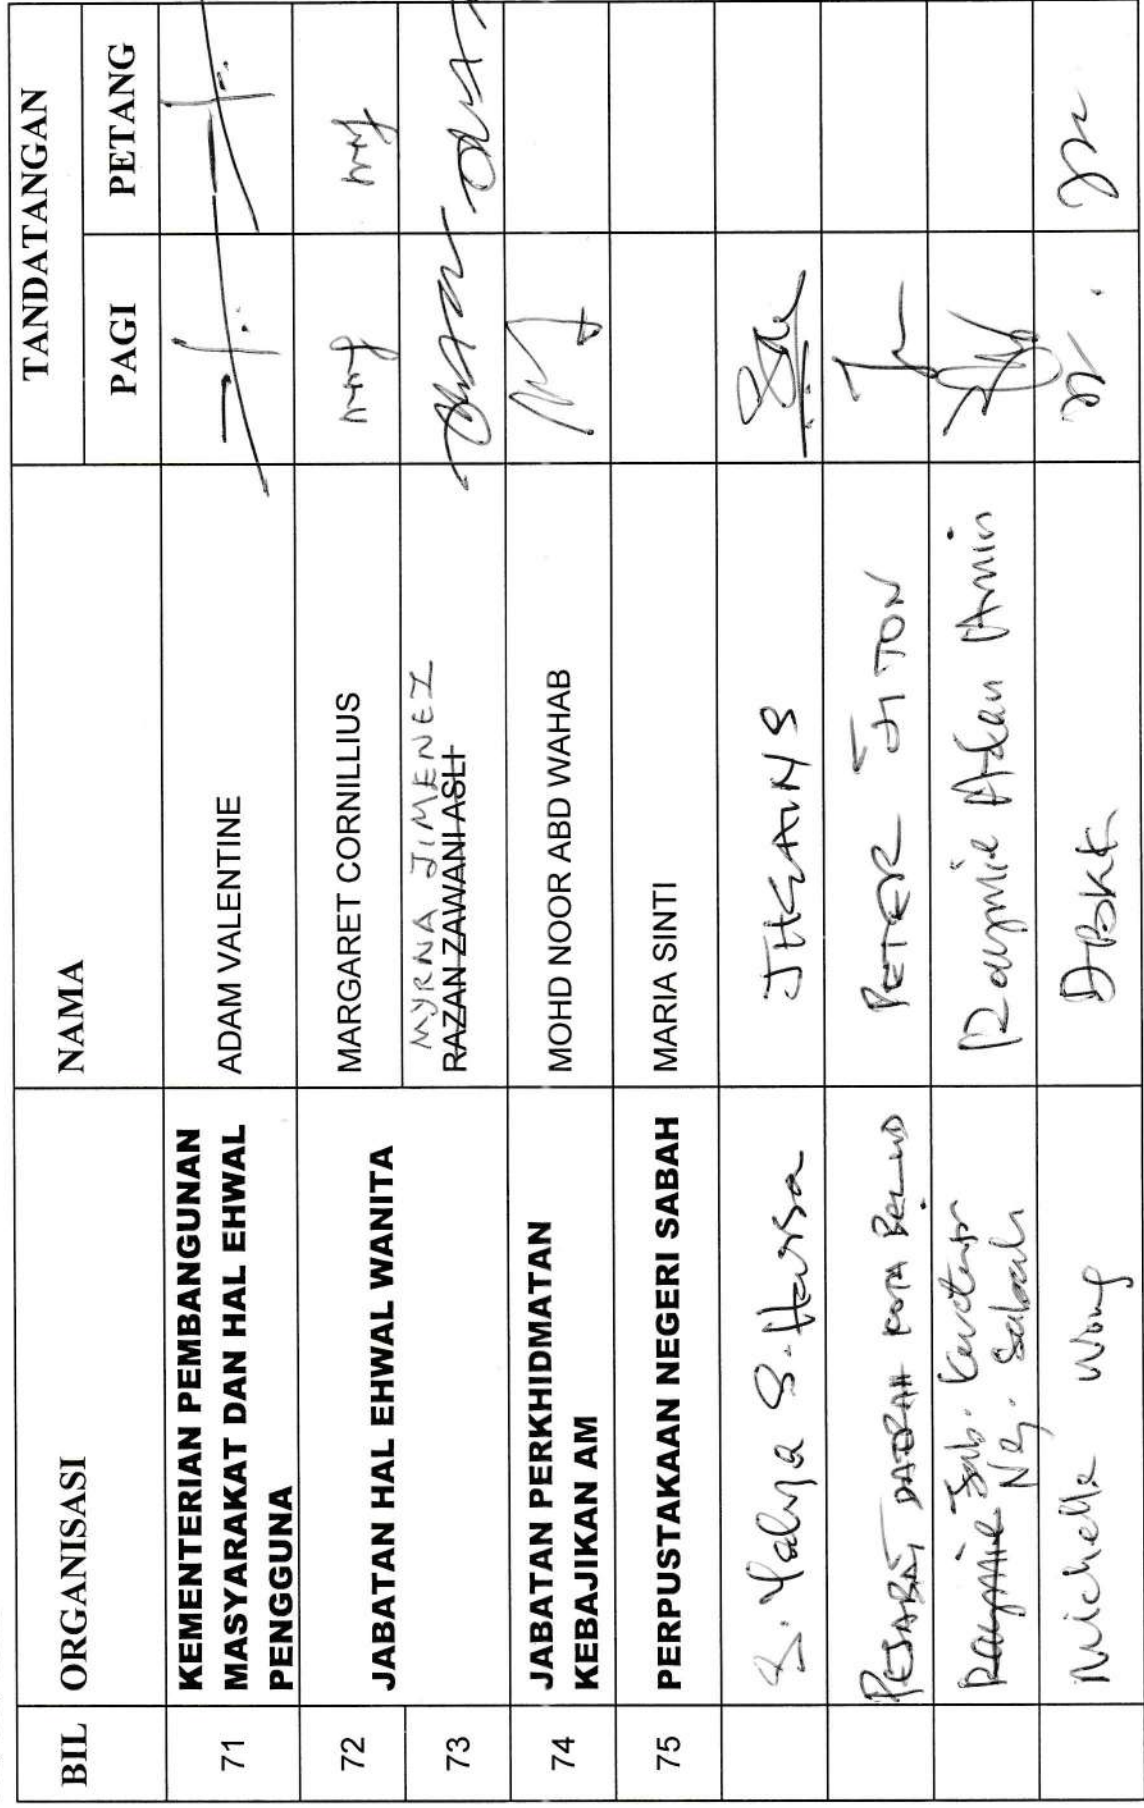 BIL ORGANISASI NAMA TANDATANGAN
PAGI PETANG
71 KEMENTERIAN PEMBANGUNAN
MASYARAKAT DAN HAL EHWAL
PENGGUNA
ADAM VALENTINE
72 JABATAN HAL EHWAL WANITA MARGARET CORNILLIUS
MYRNA JIMENEZ
73 RAZAN ZAWANI ASLI
74 JABATAN PERKHIDMATAN
KEBAJIKAN AM
MOHD NOOR ABD WAHAB
75 PERPUSTAKAAN NEGERI SABAH MARIA SINTI
S. Yahya S.
JHEAINS
PEJABAT DAERAH KOTA BELUD PETER JITON
Raymie Jab.
Neg. Sabah
Raymie Amin
Michelle Wong DBKK